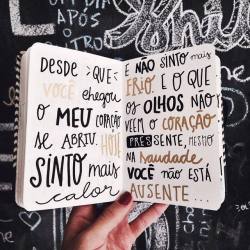 UM DIA
APÓS
O
DESDE QUE
VOCÊ chegou
O MEU CORAÇÃO
SE ABRIU. HOJE
SINTO mais
calor
E NÃO SINTO mais
FRIO. E O QUE
OS OLHOS NÃO
VEEM O CORAÇÃO
PRESSENTE, MESMO
NA saudade
VOCÊ NÃO ESTÁ
AUSENTE...